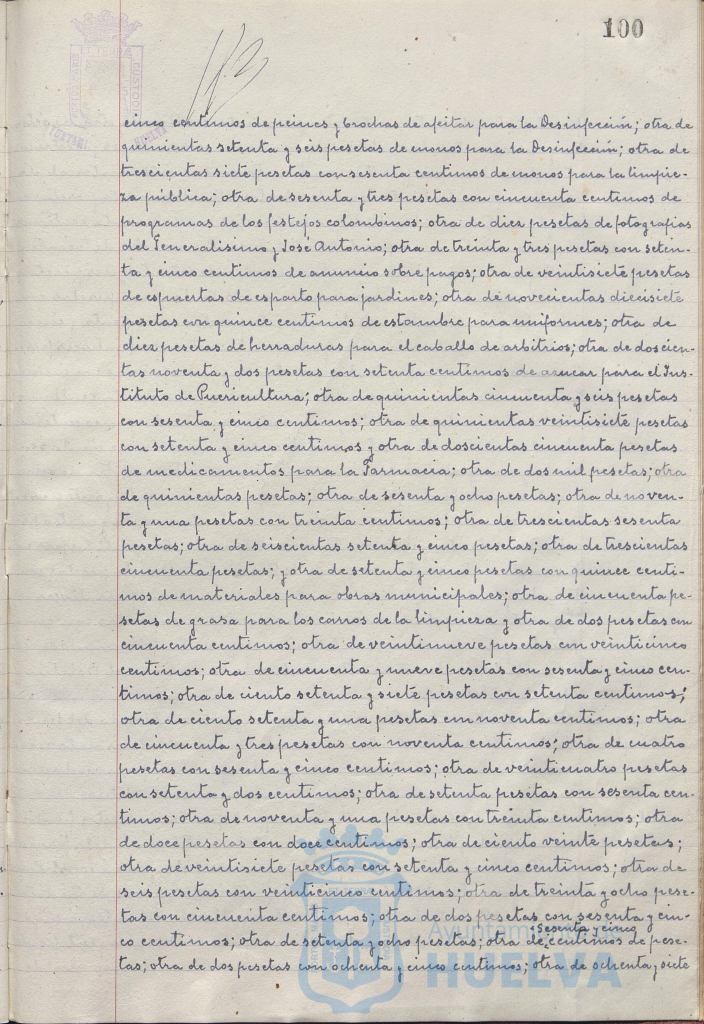 100
cinco centimos de peines y brochas de afeitar para la Desinfección; otra de
quinientas setenta y seis pesetas de monos para la Desinfección; otra de
trescientas siete pesetas con sesenta centimos de monos para la limpie-
za pública; otra de sesenta y tres pesetas con cincuenta centimos de
programas de los festejos colombinos; otra de diez pesetas de fotografias
del Generalisimo y José Antonio; otra de treinta y tres pesetas con seten-
ta y cinco centimos de anuncio sobre pagos; otra de veintisiete pesetas
de espuertas de esparto para jardines; otra de novecientas diecisiete
pesetas con quince centimos de estambre para uniformes; otra de
diez pesetas de herraduras para el caballo de arbitrios; otra de doscien-
tas noventa y dos pesetas con setenta centimos de azucar para el Ins-
tituto de Puericultura; otra de quinientas cincuenta y seis pesetas
con sesenta y cinco centimos; otra de quinientas veintisiete pesetas
con setenta y cinco centimos y otra de doscientas cincuenta pesetas
de medicamentos para la Farmacia; otra de dos mil pesetas; otra
de quinientas pesetas; otra de sesenta y ocho pesetas; otra de noven-
ta y una pesetas con treinta centimos; otra de trescientas sesenta
pesetas; otra de seiscientas setenta y cinco pesetas; otra de trescientas
cincuenta pesetas; y otra de setenta y cinco pesetas con quince centi-
mos de materiales para obras municipales; otra de cincuenta pe-
setas de grasa para los carros de la limpieza y otra de dos pesetas con
cincuenta centimos; otra de veintinueve pesetas con veinticinco
centimos; otra de cincuenta y nueve pesetas con sesenta y cinco cen-
timos; otra de ciento setenta y siete pesetas con setenta centimos;
otra de ciento setenta y una pesetas con noventa centimos; otra
de cincuenta y tres pesetas con noventa centimos; otra de cuatro
pesetas con sesenta y cinco centimos; otra de veinticuatro pesetas
con setenta y dos centimos; otra de setenta pesetas con sesenta cen-
timos; otra de noventa y una pesetas con treinta centimos; otra
de doce pesetas con doce centimos; otra de ciento veinte pesetas;
otra de veintisiete pesetas con setenta y cinco centimos; otra de
seis pesetas con veinticinco centimos; otra de treinta y ocho pese-
tas con cincuenta centimos; otra de dos pesetas con sesenta y cin-
sesenta y cinco
co centimos; otra de setenta y ocho pesetas; otra de centimos de pese-
tas; otra de dos pesetas con ochenta y cinco centimos; otra de ochenta y siete
HUELVA